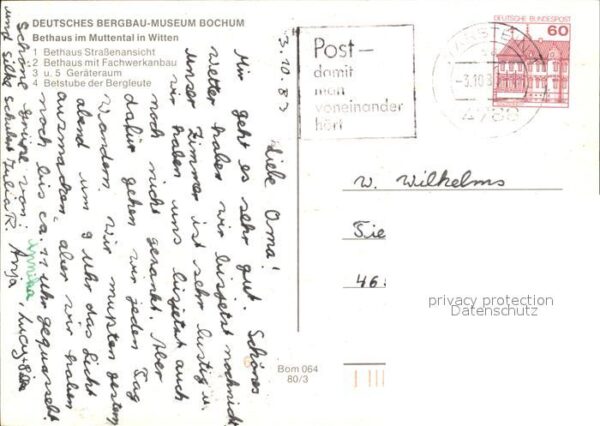 DEUTSCHES BERGBAU-MUSEUM BOCHUM
Bethaus im Muttental in Witten
1 Bethaus Straßenansicht
2 Bethaus mit Fachwerkanbau
3 u. 5 Geräteraum
4 Betstube der Bergleute
3.10.83
Liebe Oma!
Mir geht es sehr gut. Schönes
Wetter haben wir bisjetzt noch nicht
Unser Zimmer ist sehr lustig u.
wir haben uns bisjetzt auch
noch nicht gezankt. Aber
dafür gehen wir jeden Tag
wandern. Wir mußten gestern
abend um 9 Uhr das Licht
ausmachen, aber wir haben
noch bis ca. 11 Uhr gequasselt
Schöne Grüße von: Annika
und Silke Julia R. Anja
Post–
damit
man
voneinander
hört
WARSTEIN
-3.10.8
4788
DEUTSCHE BUNDESPOST
60
W. Wilhelms
Sie
46
privacy protection
Datenschutz
Bom 064
80/3